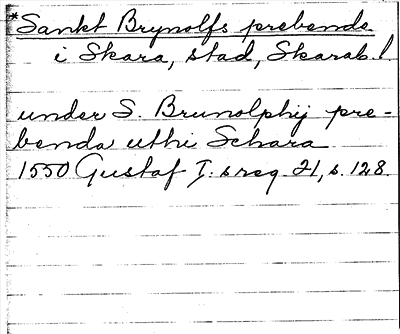 *Sankt Brynolfs prebenda
i Skara, stad, Skarab. l
under S. Brunolphij pre-
benda uthi Schara
1550 Gustaf I:s reg. 21, s. 128.